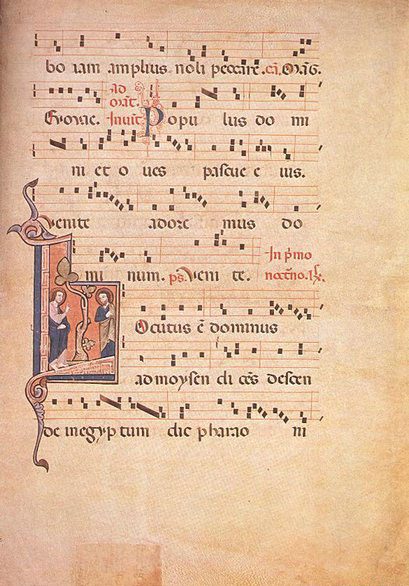 bo iam amplius noli peccare. ca. Mag.
ad
orat.
Glorae. Inuit Popu lus do mi
ni et o ues pascue e ius.
Venite adore mus do
mi num. ps. Veni te. In pmo
nocno. lx.
Locutus e dominus
ad moysen di ces descen
de in egyptum dic pharao ni